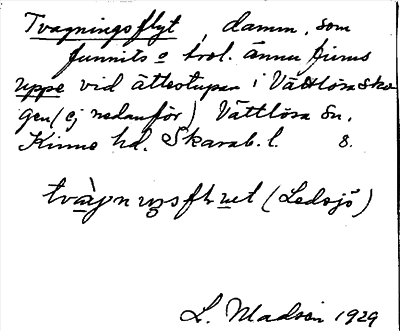 Tvagningsflyt, damm, som
funnits o trol. ännu finns
uppe vid ättestupan i Vättlösasko
gen (ej nedanför) Vättlösa sn.
Kinne hd. Skarab. l. 8.
(Ledsjö)
L. Madsén 1929